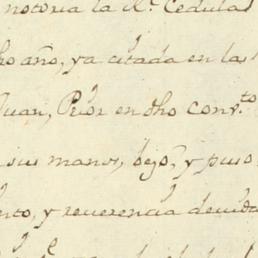 notoria la R.^l Cedula
ho año, ya citada en las
Juan, Prior en dho conv.^to
sus manos, bejo, y puso
nto, y reverencia devida